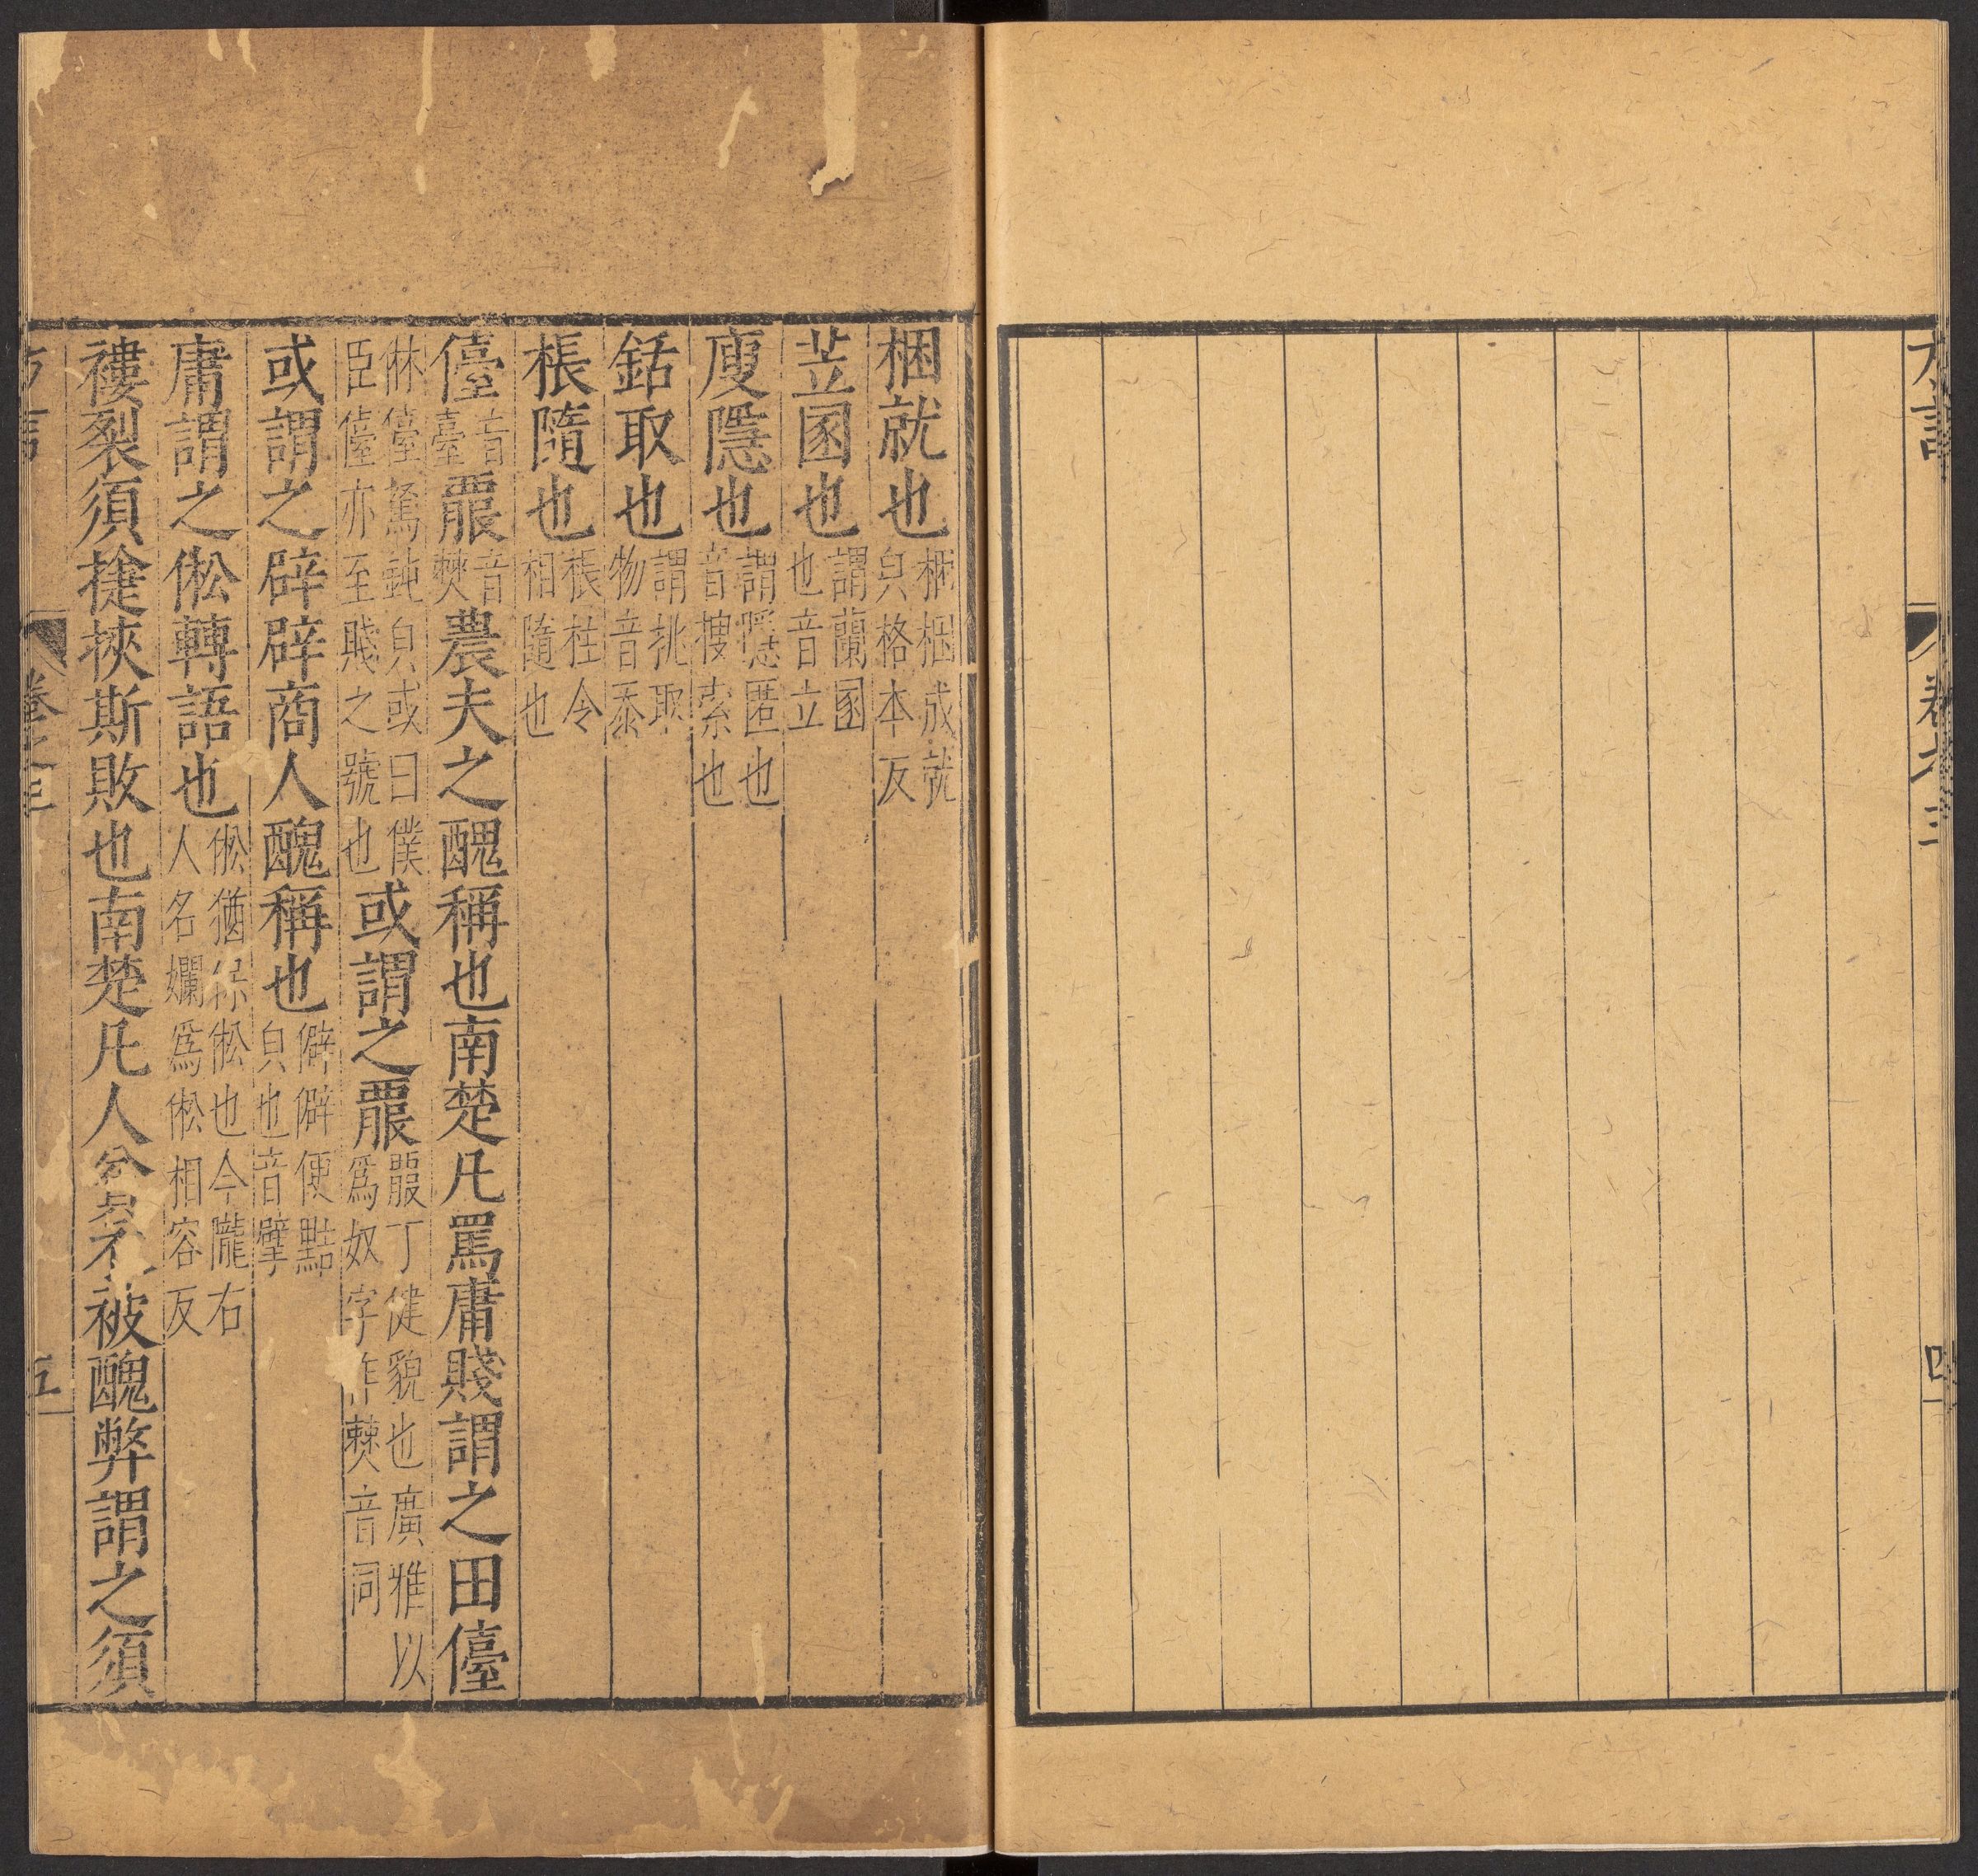 卷之三
四
梱就也梱梱成就皃格本反
苙圂也謂蘭圂也音立
廋隱也謂隱匿也音搜索也
銛取也謂挑取物音忝
棖隨也棖柱令相隨也
儓音臺㒔音僰農夫之醜稱也南楚凡罵庸賤謂之田儓
㑣儓駑鈍皃或曰僕臣儓亦至賤之號也或謂之㒔㒔丁健貌也廣雅以爲奴字作僰音同
或謂之辟辟商人醜稱也僻僻便黠皃也音擘
庸謂之倯轉語也倯猶保倯也今隴右人名孏爲倯相容反
褸裂須捷挾斯敗也南楚凡人貧衣被醜弊謂之須
方言
卷之三
五